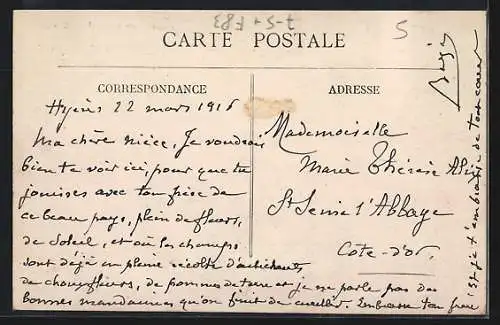 CARTE POSTALE
CORRESPONDANCE
Hyères 22 mars 1916
Ma chère nièce, Je voudrais
bien te voir ici, pour que tu
jouisses avec ton frère de
ce beau pays, plein de fleurs,
de soleil, et où les champs
sont déjà en pleine récolte d'artichauts
de choufleurs, de pommes de terre et je ne parle pas des
bonnes mandarines qu'on finit de cueillir. Embrasse ton frère
et je t'embrasse de tout coeur
ADRESSE
Mademoiselle
Marie Thérèse
St Seine l'Abbaye
Côte-d'or.
5